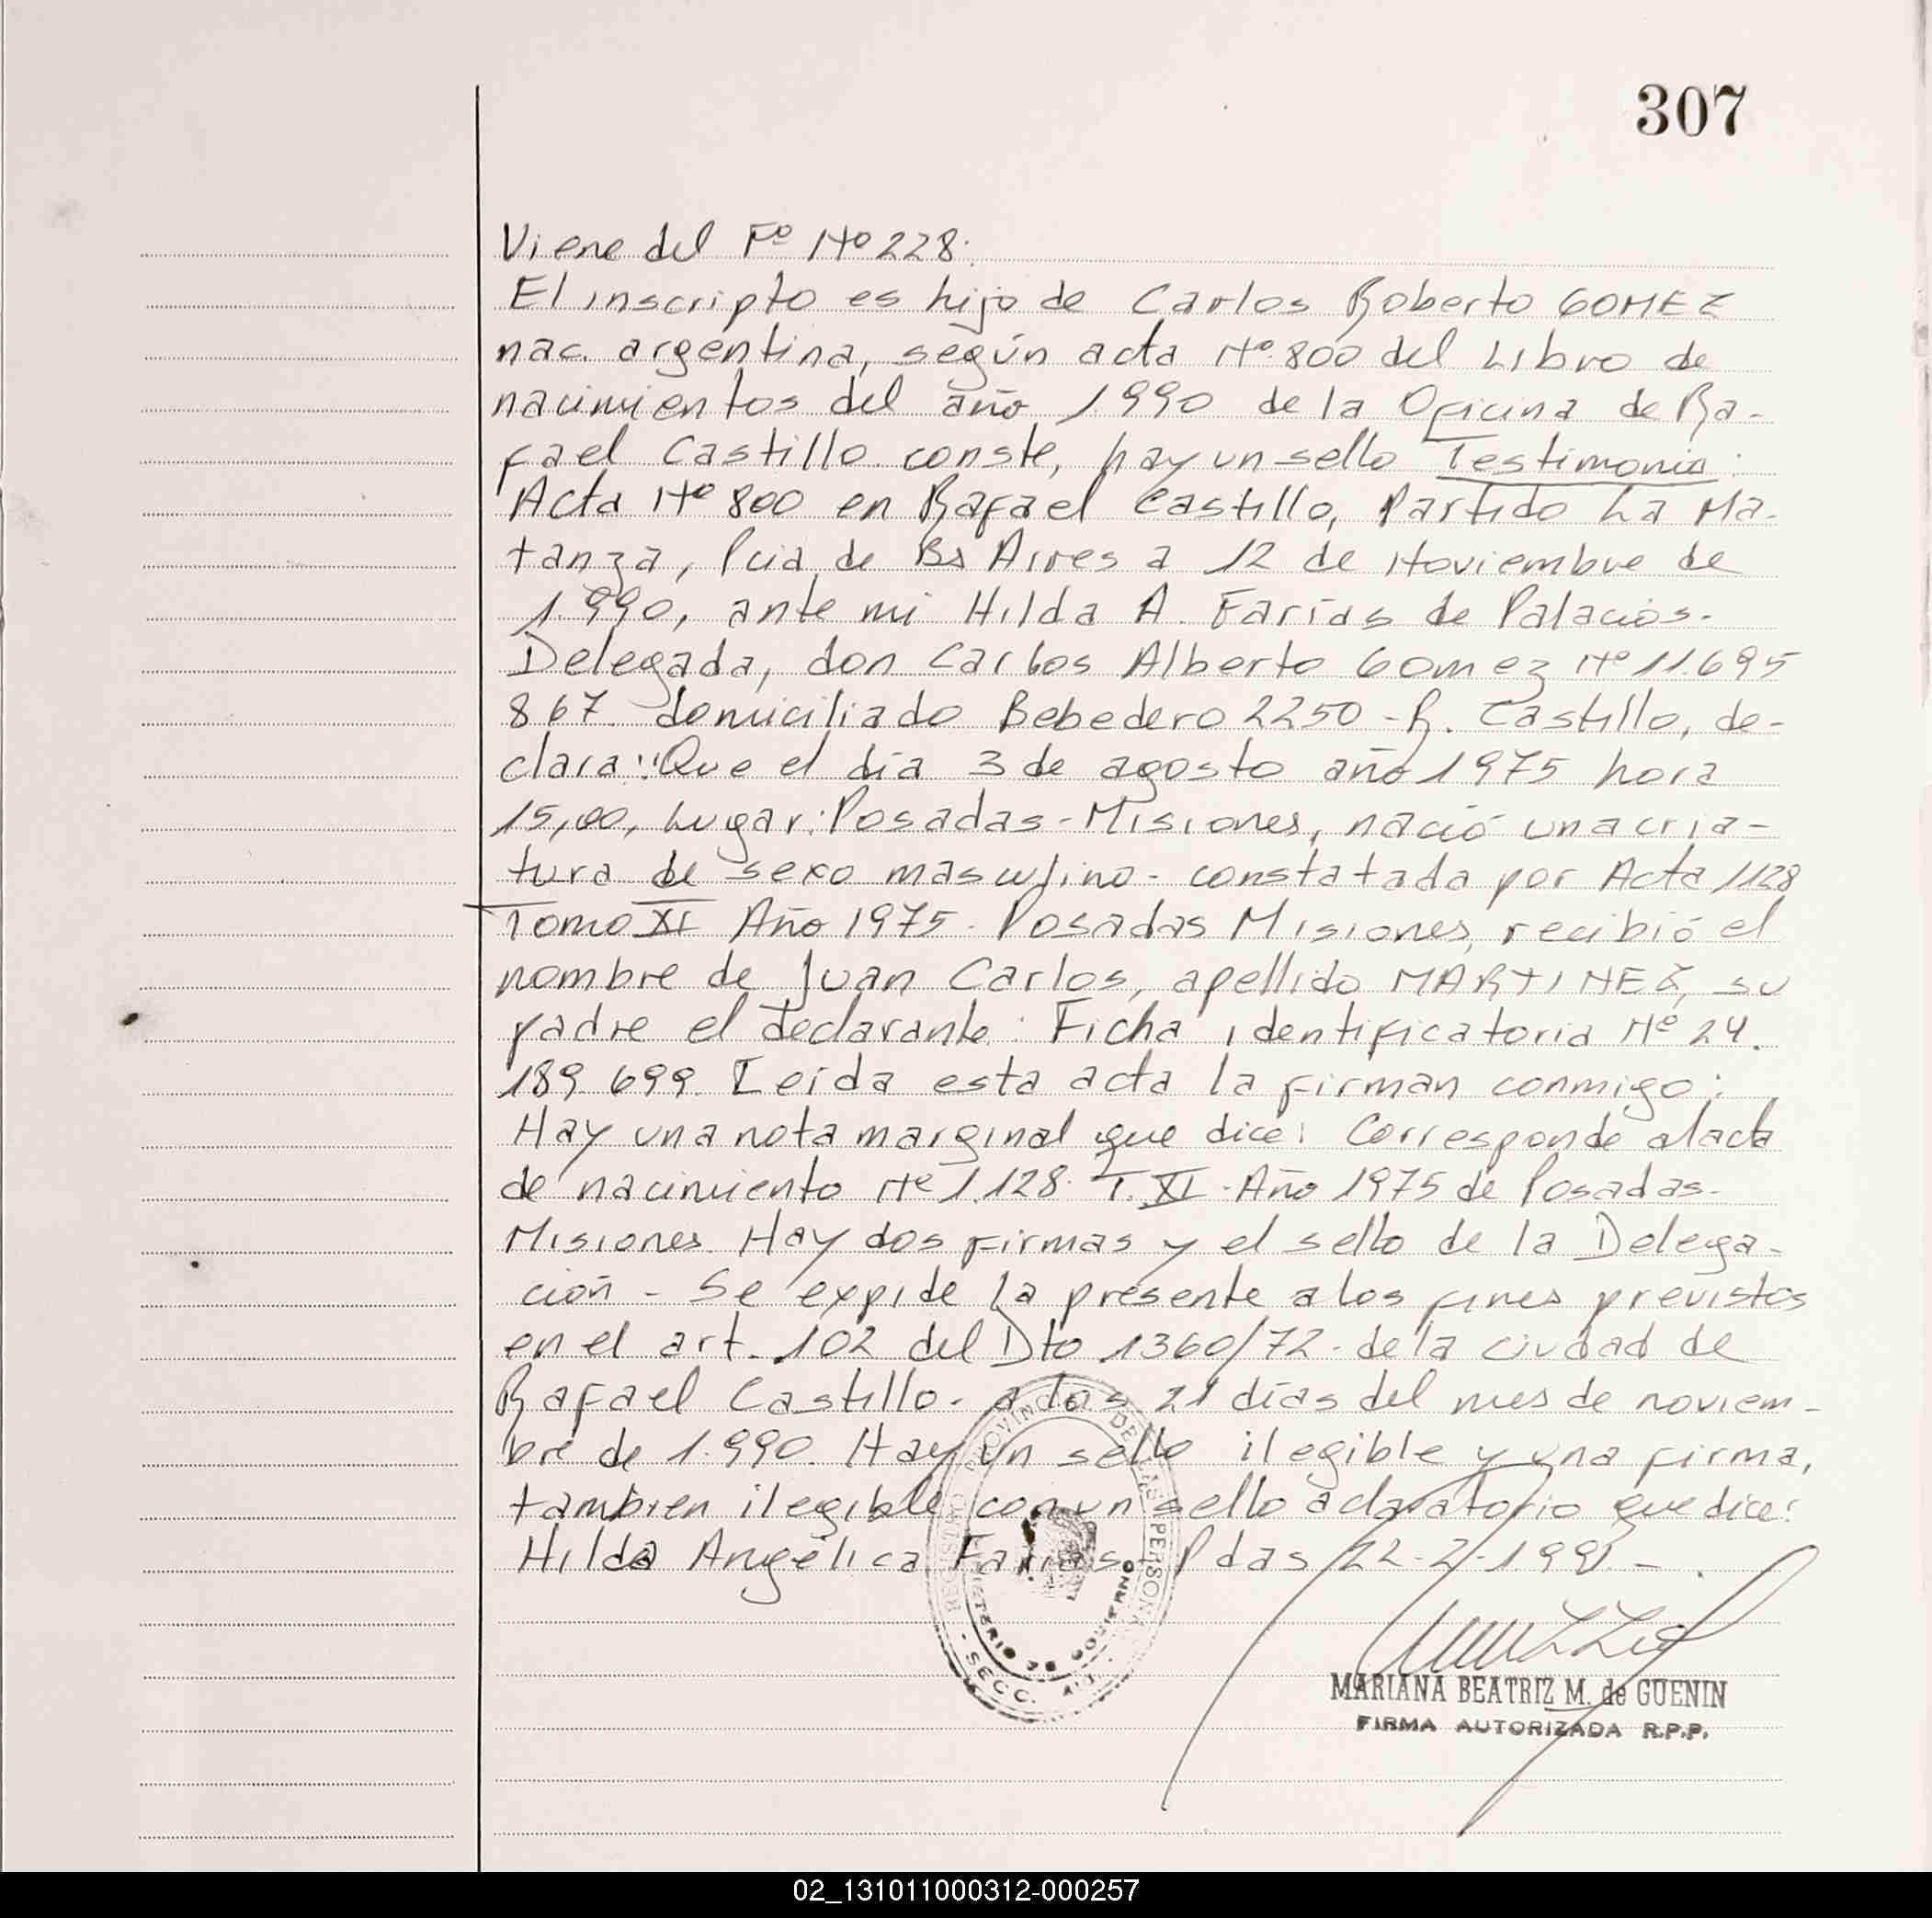 307
Viene del Fº Nº 228:
El inscripto es hijo de Carlos Roberto GOMEZ
nac. argentina, según acta Nº 800 del Libro de
nacimientos del año 1.990 de la Oficina de Ra-
fael Castillo conste, hay un sello Testimonio:
Acta Nº 800 en Rafael Castillo, Partido La Ma-
tanza, Pcia de Bs Aires a 12 de Noviembre de
1.990, ante mi Hilda A. Farías de Palacios.
Delegada, don Carlos Alberto Gomez Nº 11.695
867 domiciliado Bebedero 2250 - R. Castillo, de-
clara: "Que el día 3 de agosto año 1975 hora
15,00, Lugar: Posadas - Misiones, nació una cria-
tura de sexo masculino - constatada por Acta 1128
Tomo XI Año 1975. Posadas Misiones, recibió el
nombre de Juan Carlos, apellido MARTINEZ, su
padre el declarante: Ficha identificatoria Nº 24.
189.699. Leida esta acta la firman conmigo:
Hay una nota marginal que dice: Corresponde al acta
de nacimiento Nº 1.128. T. XI - Año 1975 de Posadas.
Misiones. Hay dos firmas y el sello de la Delega-
ción - Se expide la presente a los fines previstos
en el art. 102 del Dto 1360/72 - de la ciudad de
Rafael Castillo - a los 21 días del mes de noviem-
bre de 1.990. Hay un sello ilegible y una firma,
tambien ilegible con un sello aclaratorio que dice:
Hilda Angélica Farias - Pdas 22-2-1.991.-
REGISTRO PROVINCIAL DE LAS PERSONAS
MINISTERIO DE GOBIERNO
SECC.
MARIANA BEATRIZ M. de GUENIN
FIRMA AUTORIZADA R.P.P.
02_131011000312-000257